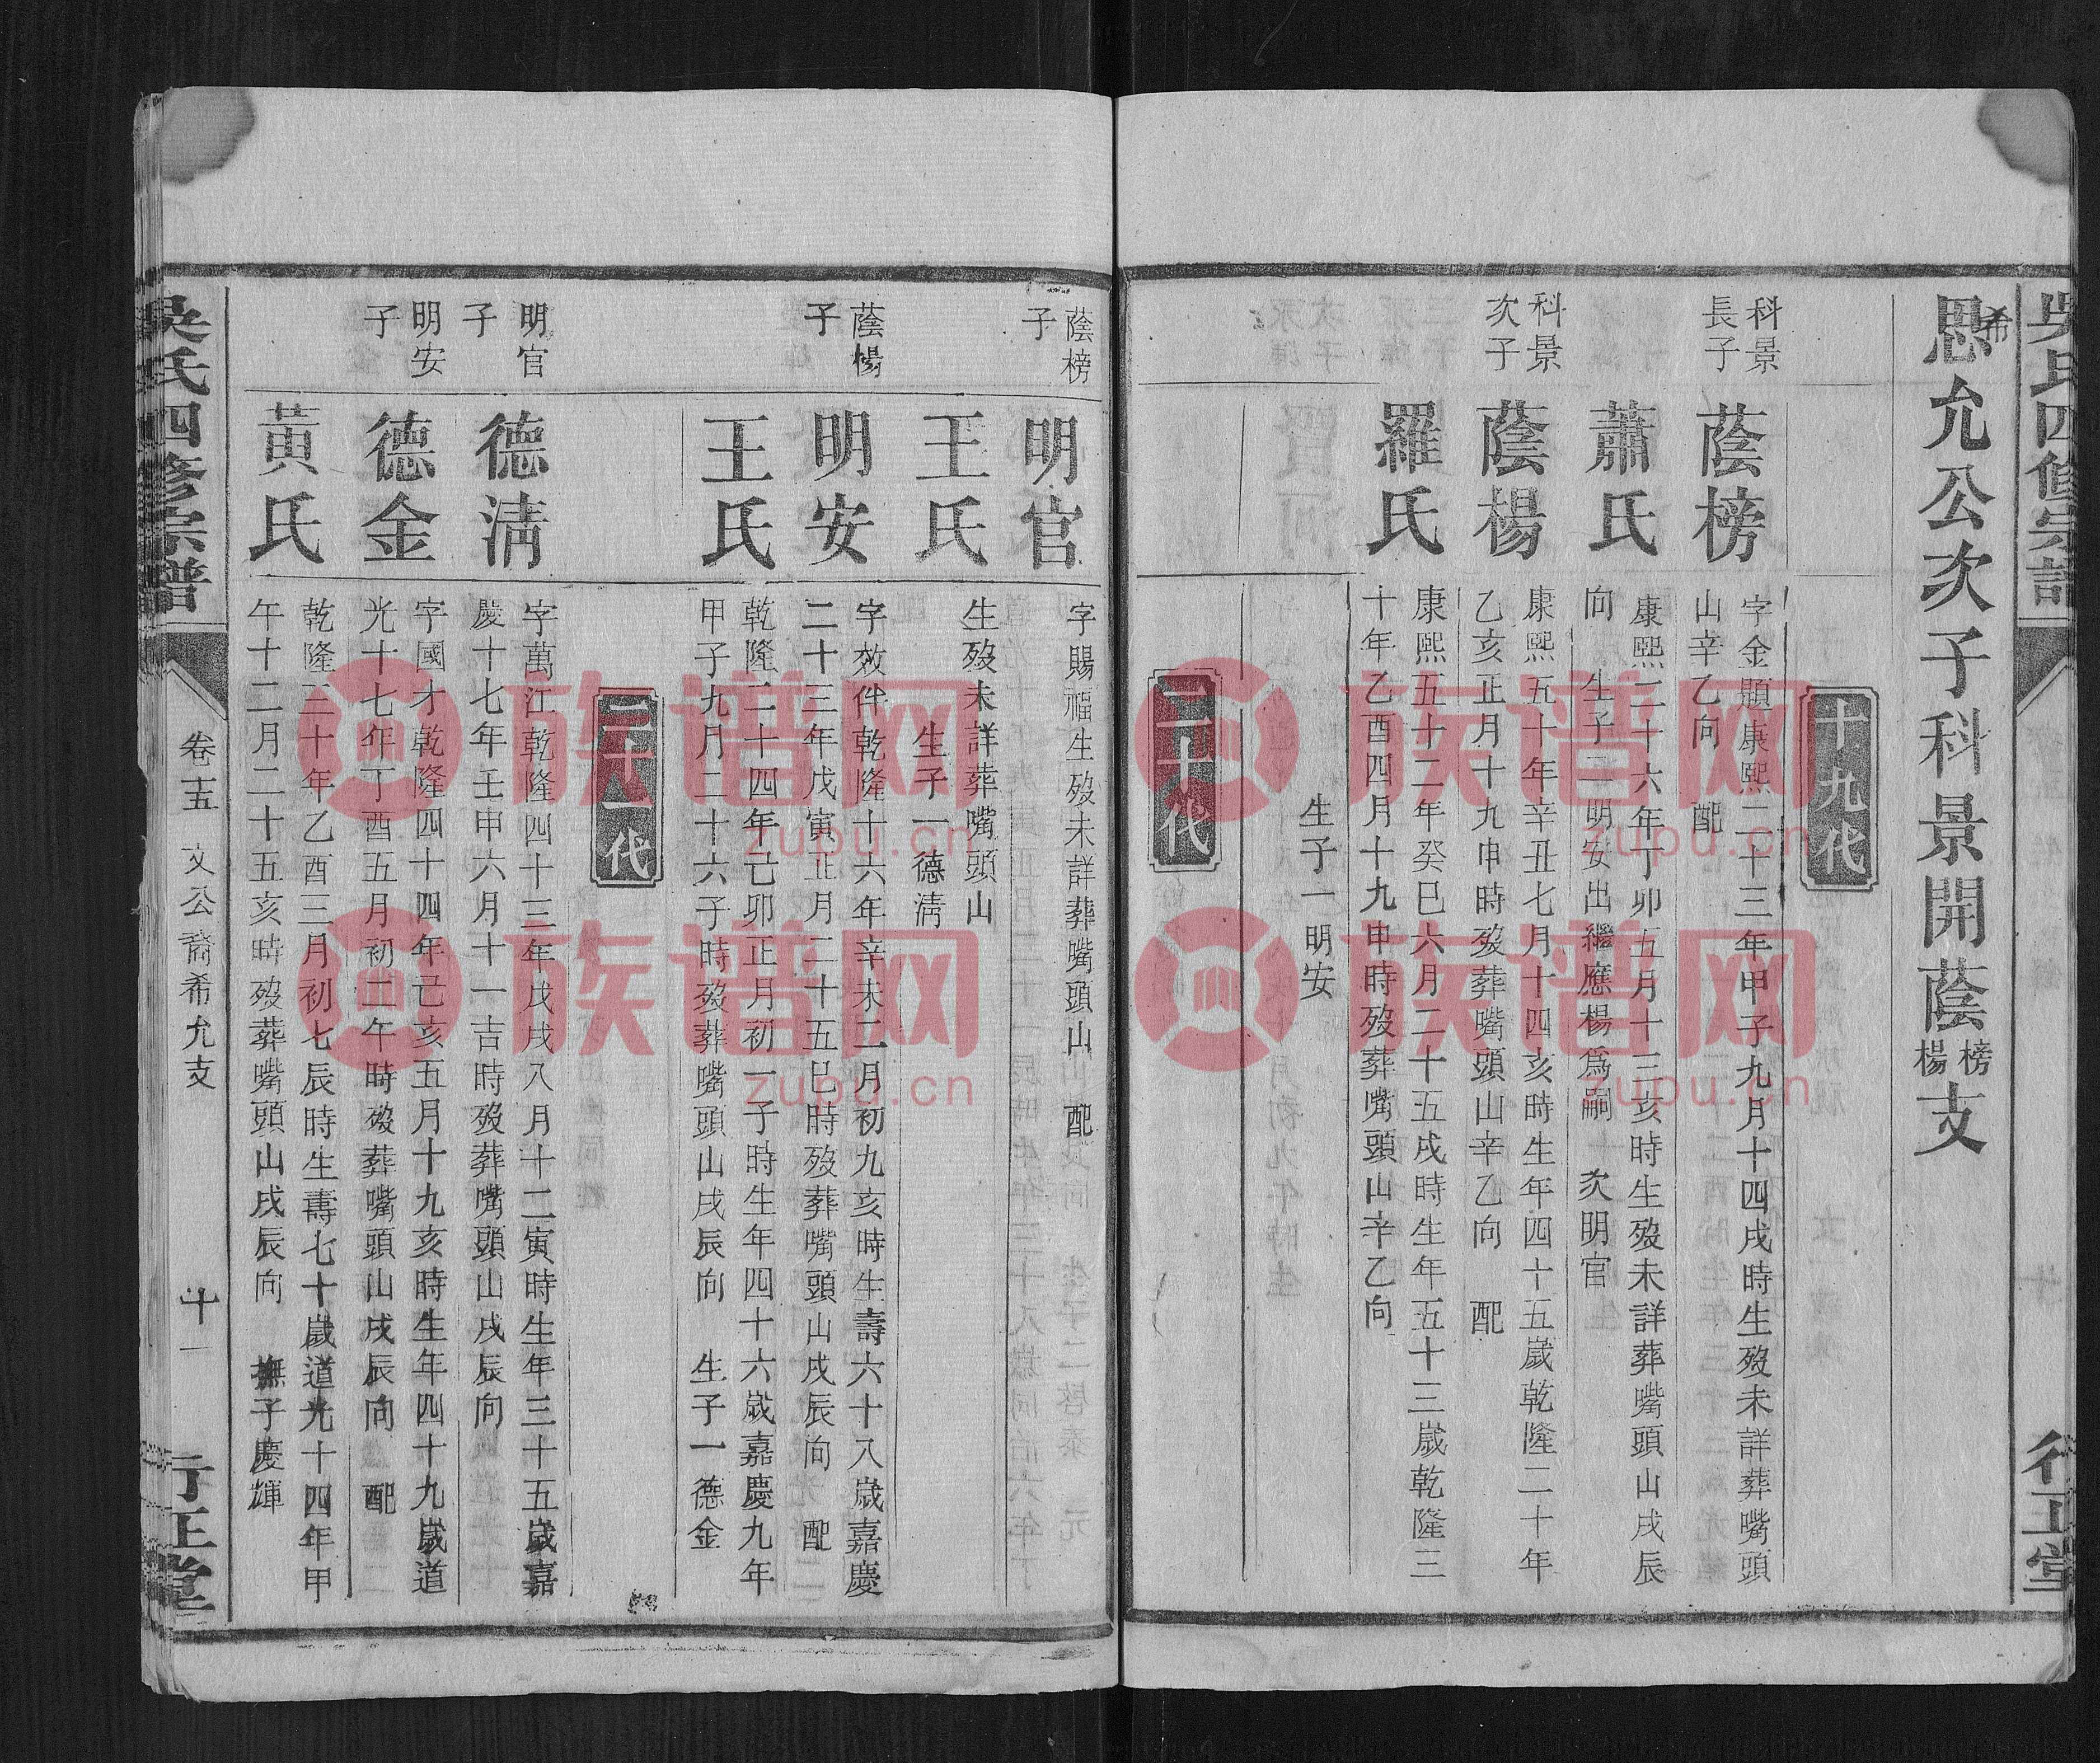 吳氏四修宗譜
行正堂
希
思允公次子科景開蔭榜楊支
十九代
科景長子
蔭榜
字金顯康熙二十三年甲子九月十四戌時生歿未詳葬嘴頭
山辛乙向 配
蕭氏
康熙二十六年丁卯五月十三亥時生歿未詳葬嘴頭山戌辰
向 生子二明安出繼應楊爲嗣 次明官
科景次子
蔭楊
康熙五十年辛丑七月十四亥時生年四十五嵗乾隆二十年
乙亥正月十九申時歿葬嘴頭山辛乙向 配
羅氏
康熙五十二年癸巳六月二十五戌時生年五十三嵗乾隆三
十年乙酉四月十九申時歿葬嘴頭山辛乙向
生子一明安
二十代
蔭榜子
明官
字賜福生歿未詳葬嘴頭山 配
王氏
生歿未詳葬嘴頭山
生子一德淸
蔭楊子
明安
字效伴乾隆十六年辛未二月初九亥時生壽六十八歲嘉慶
二十三年戊寅正月二十五巳時歿葬嘴頭山戌辰向 配
王氏
乾隆二十四年己卯正月初一子時生年四十六歲嘉慶九年
甲子九月二十六子時歿葬嘴頭山戌辰向 生子一德金
二十一代
明官子
德淸
字萬江乾隆四十三年戊戌八月十二寅時生年三十五歲嘉
慶十七年壬申六月十一吉時歿葬嘴頭山戌辰向
明安子
德金
字國才乾隆四十四年己亥五月十九亥時生年四十九歲道
光十七年丁酉五月初二午時歿葬嘴頭山戌辰向 配
黃氏
乾隆三十年乙酉三月初七辰時生壽七十歲道光十四年甲
午十二月二十五亥時歿葬嘴頭山戌辰向 撫子慶輝
吳氏四修宗譜
卷十五 文公裔希允支
十一
行正堂
族谱网
zupu.cn
族谱网
zupu.cn
族谱网
zupu.cn
族谱网
zupu.cn